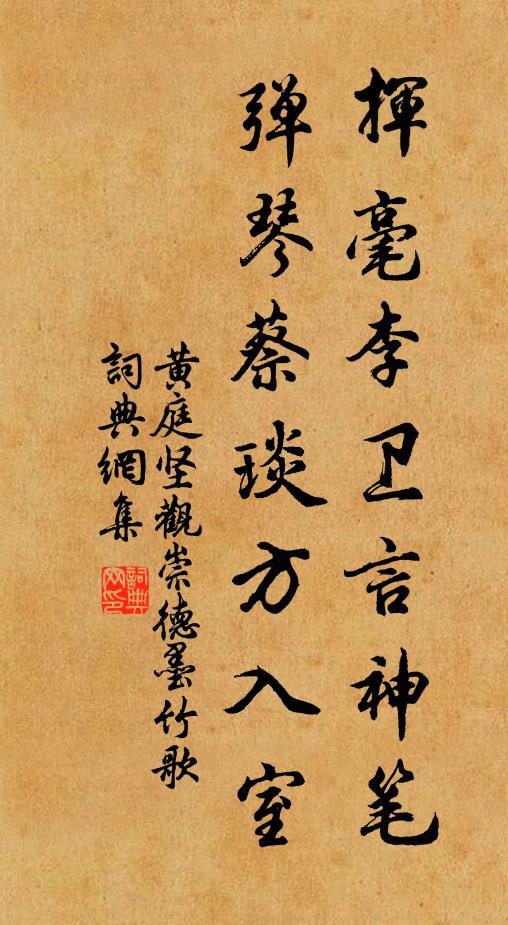 揮毫李卫言神笔
弹琴蔡琰方入室
黄庭坚觀崇德墨竹歌
詞典網集
詞典
网印